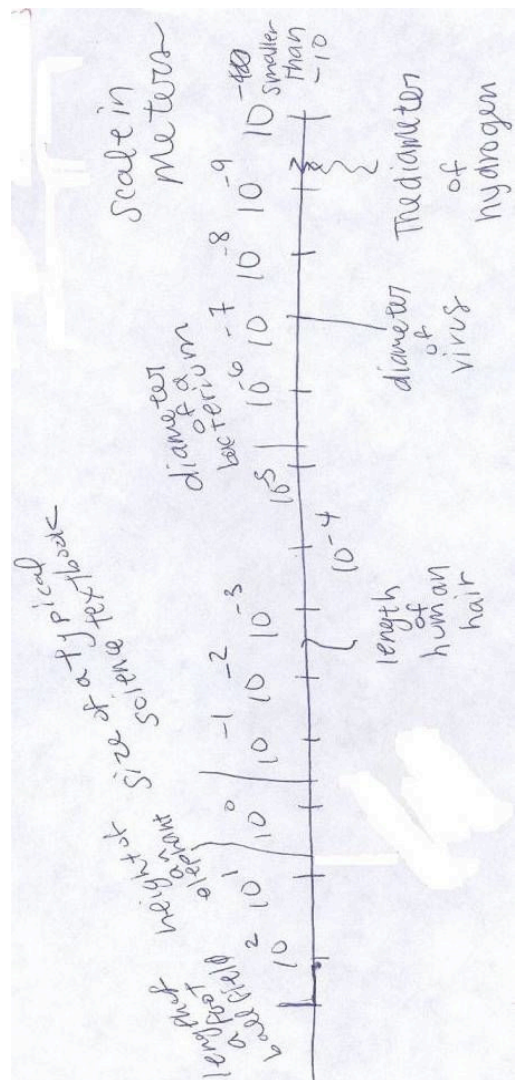 length of
a foot
ball field
height of
an
elephant
size of a typical
science textbook
diameter
of a
bacterium
scale in
meters
10² 10¹ 10⁰ 10⁻¹ 10⁻² 10⁻³ 10⁻⁵ 10⁻⁶ 10⁻⁷ 10⁻⁸ 10⁻⁹ 10
smaller
than
-10
10⁻⁴
length
of
human
hair
diameter
of
virus
The diameter
of
hydrogen